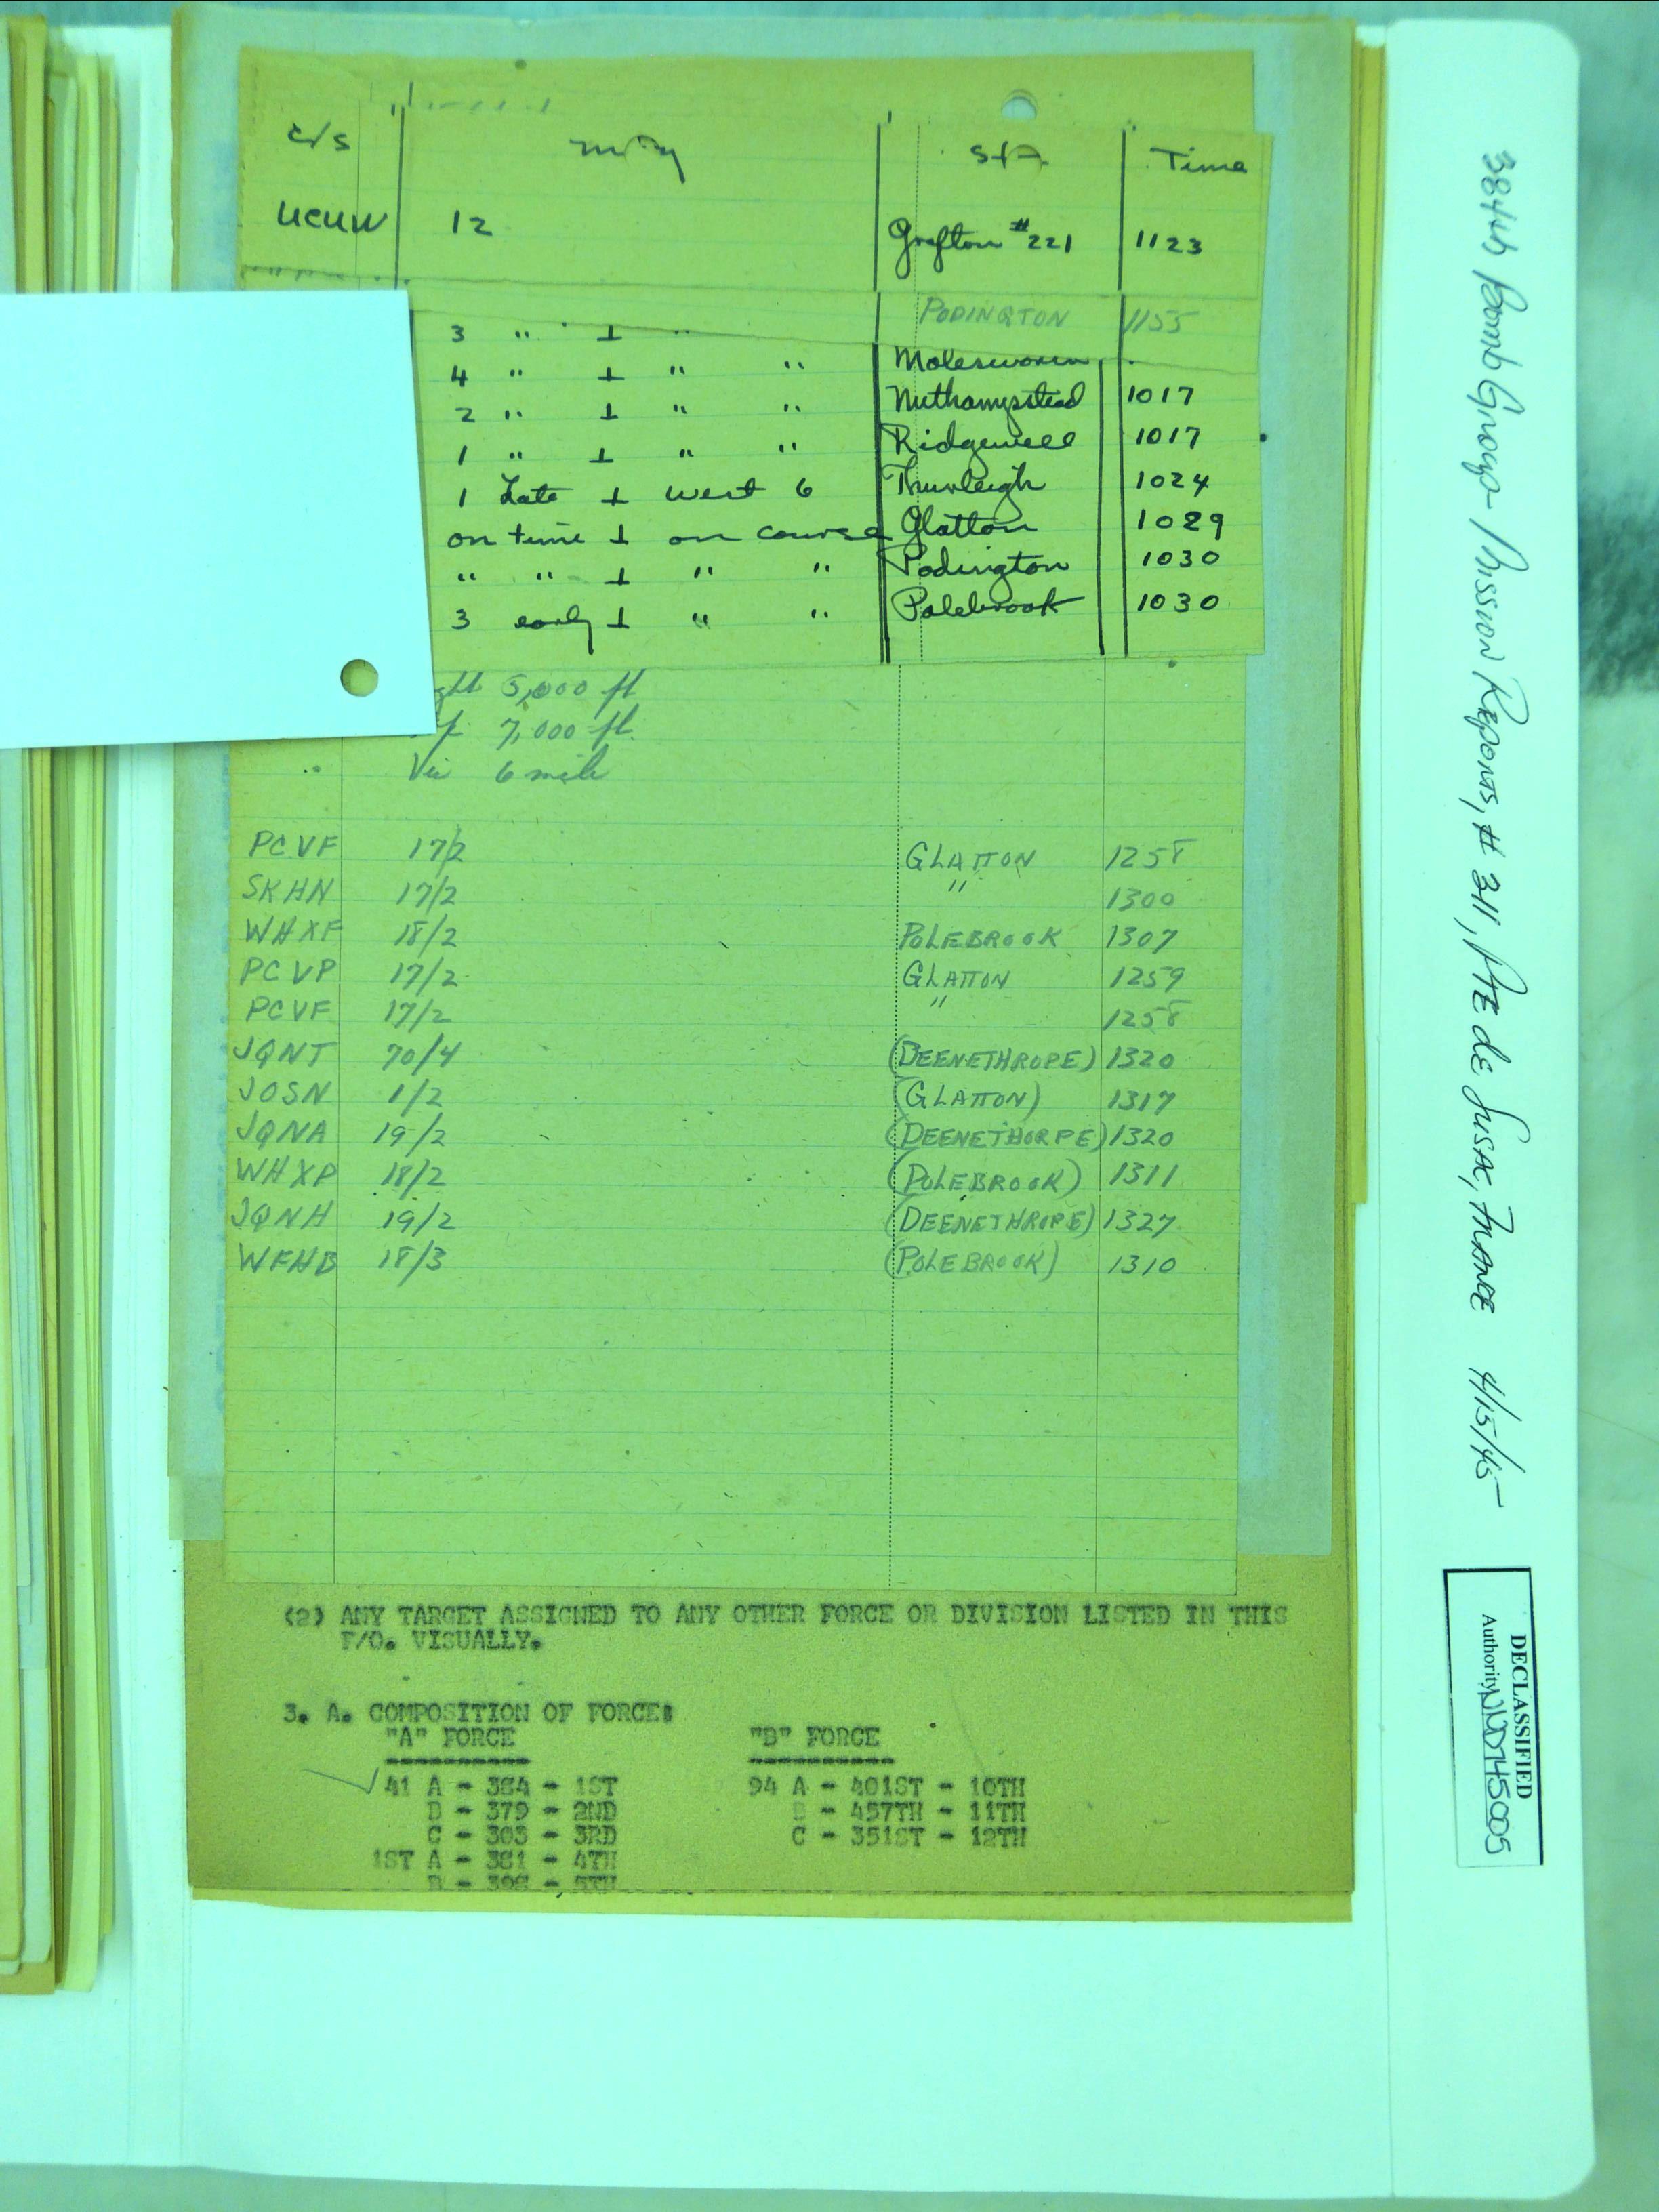 c/s Msg Sta. Time
UCUW 12 Grafton #221 1123
3 " ⊥ " PODINGTON 1155
4 " ⊥ " " Molesworth
2 " ⊥ " " Nuthampstead 1017
1 " ⊥ " " Ridgewell 1017
1 Late ⊥ West 6 Thurleigh 1024
on time ⊥ on course Glatton 1029
" " ⊥ " " Podington 1030
3 early ⊥ " " Polebrook 1030
5,000 ft
7,000 ft.
Vis 6 mile
PCVF 17/2 GLATTON 1258
SKHN 17/2 " 1300
WHXF 18/2 POLEBROOK 1307
PCVP 17/2 GLATTON 1259
PCVF 17/2 " 1258
JQNT 70/4 (DEENETHROPE) 1320
JOSN 1/2 (GLATTON) 1317
JQNA 19/2 (DEENETHORPE) 1320
WHXP 18/2 (POLEBROOK) 1311
JQNH 19/2 (DEENETHROPE) 1327
WFHB 18/3 (POLEBROOK) 1310
(2) ANY TARGET ASSIGNED TO ANY OTHER FORCE OR DIVISION LISTED IN THIS
F/O. VISUALLY.
3. A. COMPOSITION OF FORCE:
"A" FORCE "B" FORCE
41 A - 384 - 1ST 94 A - 401ST - 10TH
B - 379 - 2ND B - 457TH - 11TH
C - 303 - 3RD C - 351ST - 12TH
1ST A - 381 - 4TH
B - 398 - 5TH
384th Bomb Group Mission Reports, # 311, PTE de SUSAC, FRANCE 4/15/45
DECLASSIFIED
Authority NND745005